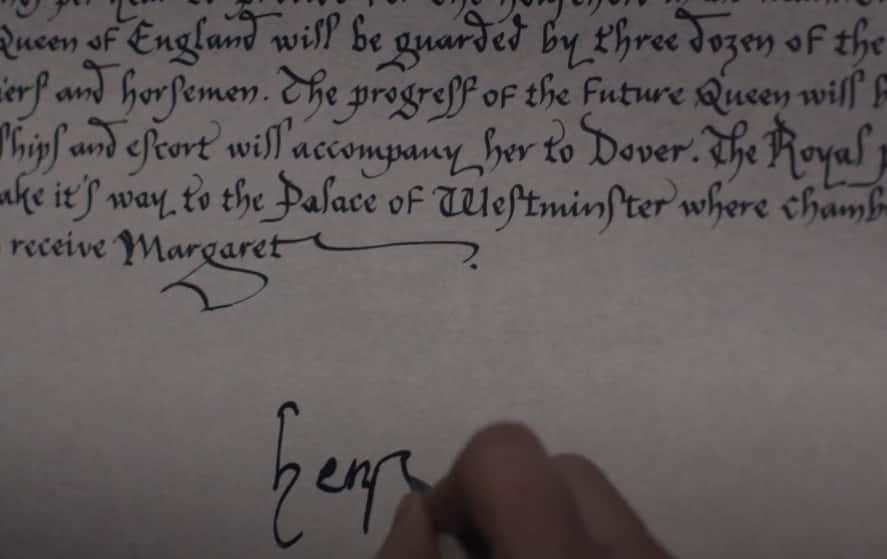 per year to provide for the household in
Queen of England will be guarded by three dozen of the
iers and horsemen. The progress of the Future Queen will
ships and escort will accompany her to Dover. The Royal
ake it's way to the Palace of Westminster where chamb
receive Margaret
henr